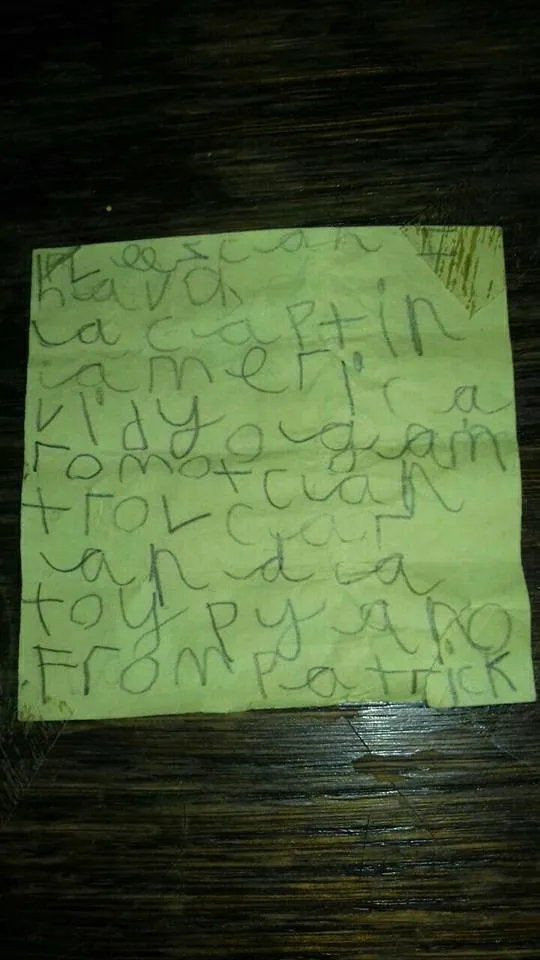 PLees can I
hava
a captin
america
vidyo gam
romot
trol cian car
and a
toy pyano
From Patrick